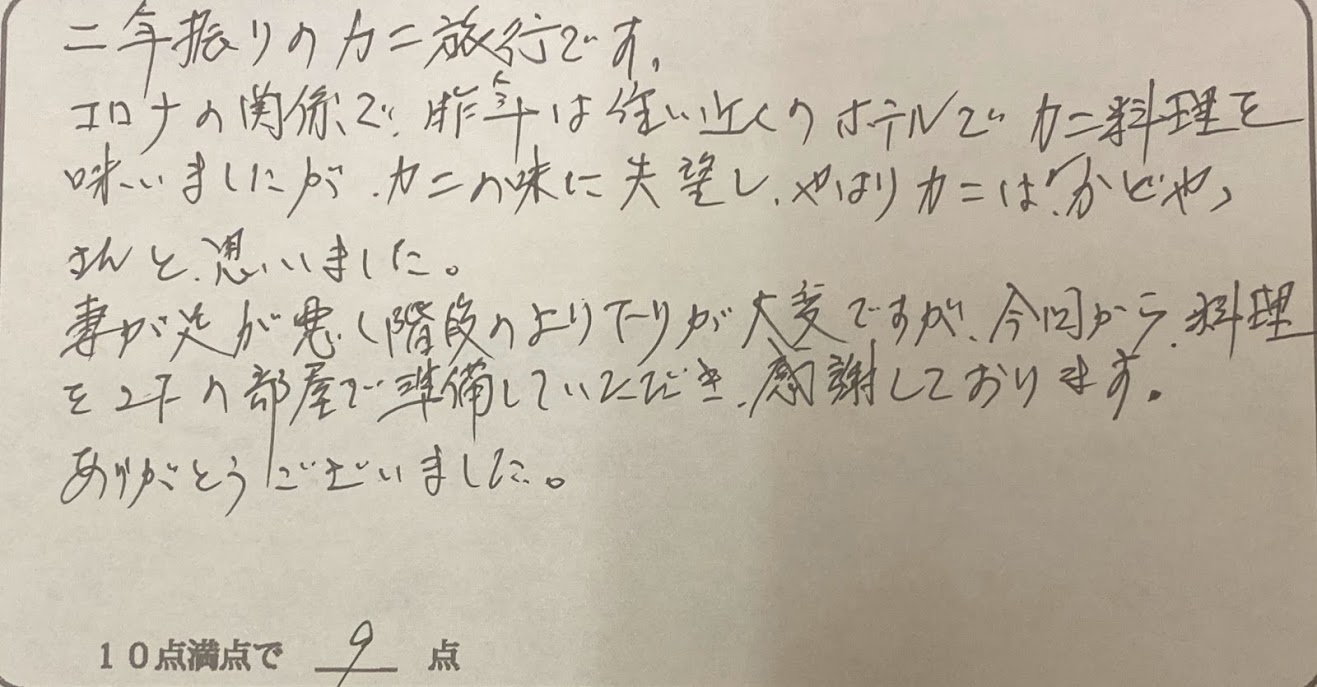 二年振りのカニ旅行です。
コロナの関係で、昨年は住い近くのホテルでカニ料理を
味いましたが、カニの味に失望し、やはりカニは「かどや」
さんと思いいました。
妻が足が悪く階段のよりおりが大変ですが、今回から、料理
を2Fの部屋で準備していただき、感謝しております。
ありがとうございました。
10点満点で 9 点